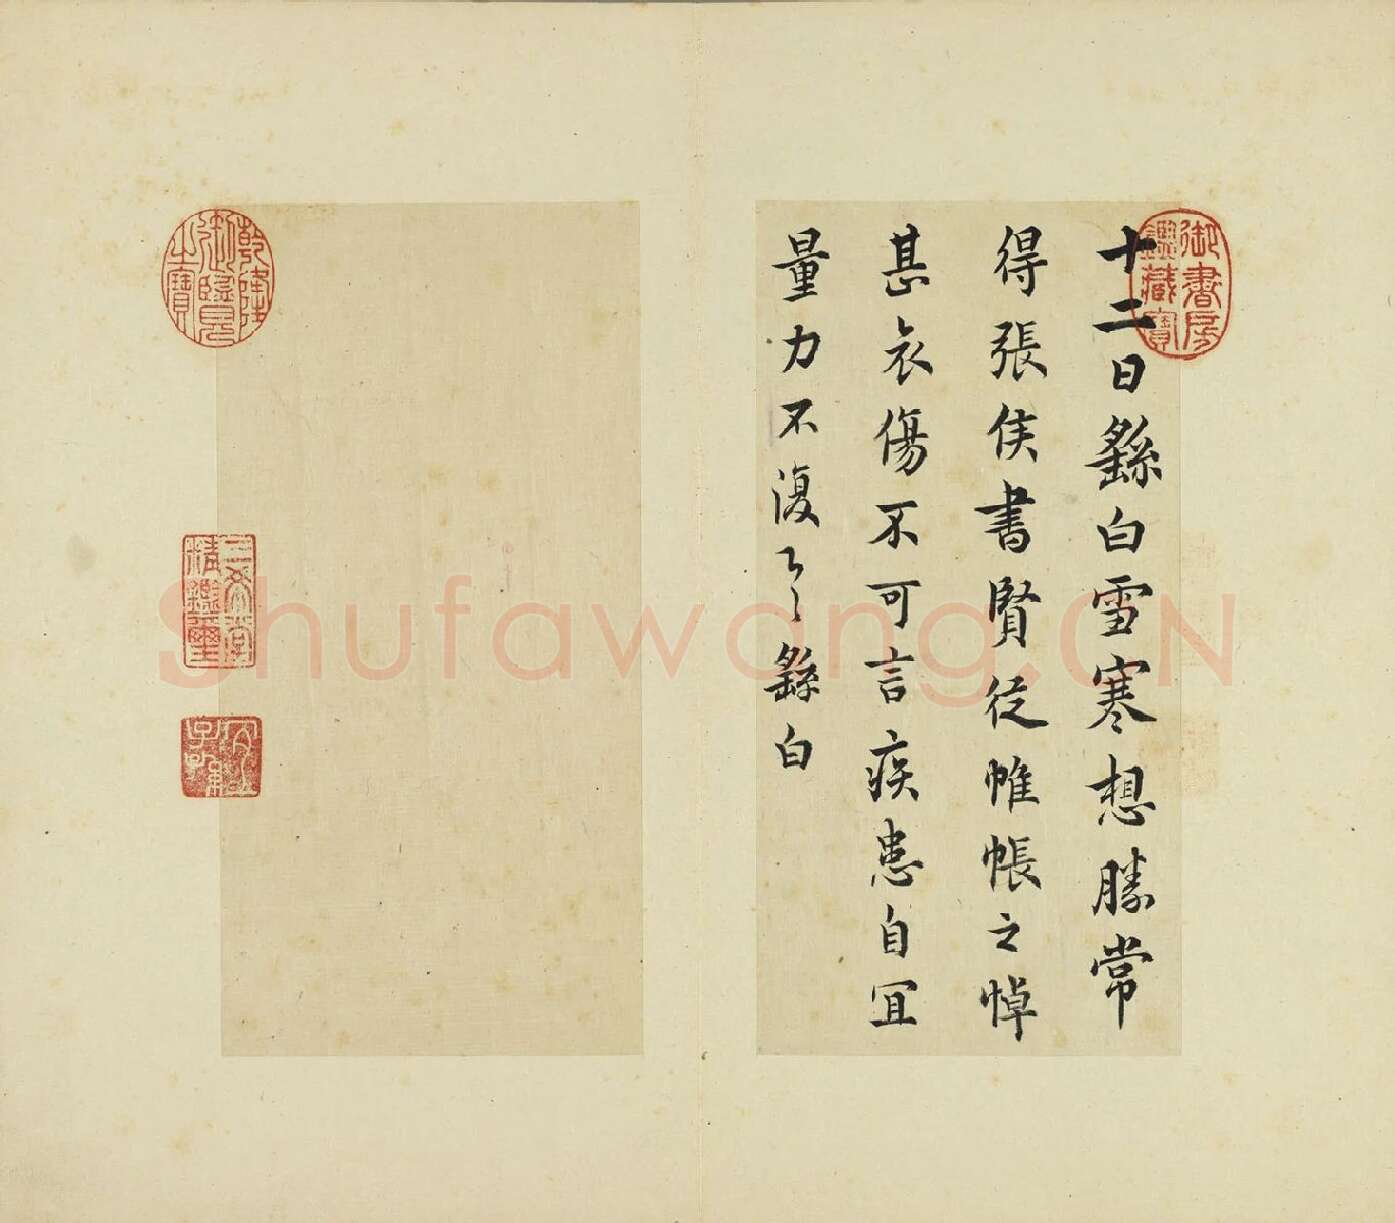 十二日繇白雪寒想勝常
得張侯書賢從帷帳之悼
甚哀傷不可言疾患自宜
量力不復々繇白
御書房鑑藏寶
乾隆御覽之寶
三希堂精鑑璽
宜子孫
Shufawang.CN